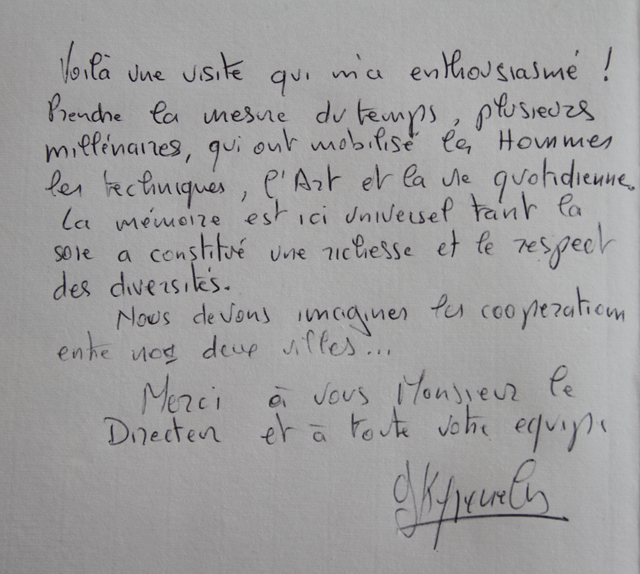 Voilà une visite qui m'a enthousiasmé !
Prendre la mesure du temps, plusieurs
millénaires, qui ont mobilisé les Hommes
les techniques, l'Art et la vie quotidienne.
La mémoire est ici universel tant la
soie a constitué une richesse et le respect
des diversités.
Nous devons imaginer les cooperations
entre nos deux villes...
Merci à vous Monsieur le
Directeur et à toute votre equipe